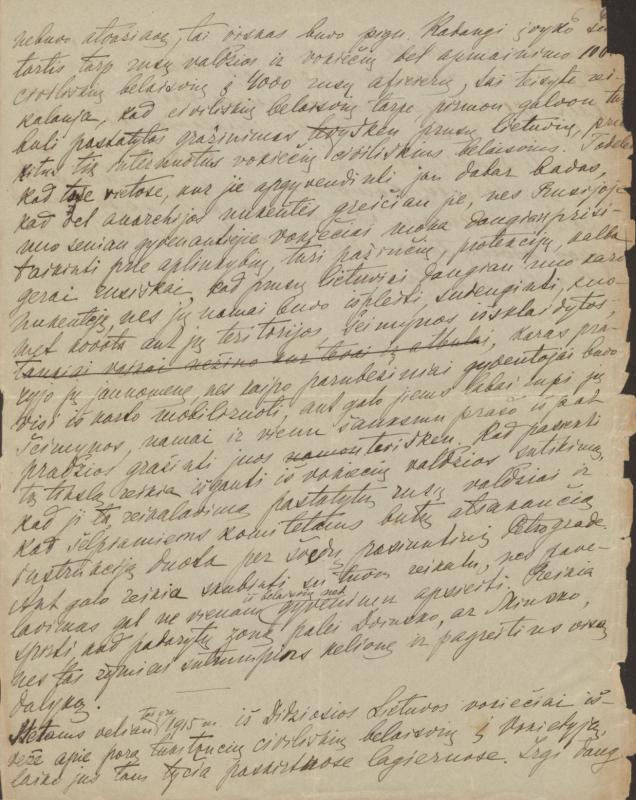 nebuvo atvažiavę, tai viskas buvo pigu. Kadangi įvyko su-
tartis tarp rusų valdžios ir vokiečių dėl apmainimo 100
civiliškų belaisvių į 4000 rusų afierierų, tai teisybė rei-
kalauja, kad civiliškų belaisvių tarpe pirmon galvon
buti pastatytos grąžinimas prusų lietuvių, prieš
kitus tik internuotus vokiečių civiliškius belaisvius. Todėl
kad tose vietose, kur jie apgyvendinti jau dabar badas,
kad del anarchijos nukentės greičiau jie, nes Rusijoje
nuo seniau gyvenantieje vokiečiai moka daugiau prisi-
taikinti prie aplinkybių, turi pažinčių, protekcijų, kalba
gerai rusiškai, kad prusų lietuviai daugiau nuo karo
nukentėję, nes jų namai buvo išplėšti, sudeginti, nuo-
met kovota ant jų teritorijos šeimynos išsklaidytos,
tankiai vaikai nežino kur tėvai ir atbulai, karas pra-
žyjo jų jaunuomenę, nes kaipo parubežiniai gyventojai buvo
visi iš karto mobilizuoti, ant galo jiems labai rupi jų
šeimynos, namai ir vienu šauksmu prašo iš pat
pradžios grąžinti juos namon. Kad pasiekti
tą tikslą reikia išgauti iš vokiečių valdžios sutikimą,
kad ji tą reikalavimą pastatytų rusų valdžiai ir
kad šelpiamiems komitetams butų atsakančią
instrukciją duota per švedų pasiuntinį Petrograde.
Ant galo reikia skubinti su tuom reikalu, nes pave-
lavimas gal ne vienam iš belaisvių net gyvenimu apsieiti. Reikia
spręsti kad padarytų zoną palei Dvinską, ar Minską,
nes tas žymiai sutrumpins kelionę ir pagreitins visą
dalyką.
Metams vėliau 1915 m. iš Didžiosios Lietuvos vokiečiai iš-
vežė apie porą tukstančių civiliškų belaisvių į Vokietyją,
laikė juos tam tyčia paskirtuose lagieriuose. Irgi daug